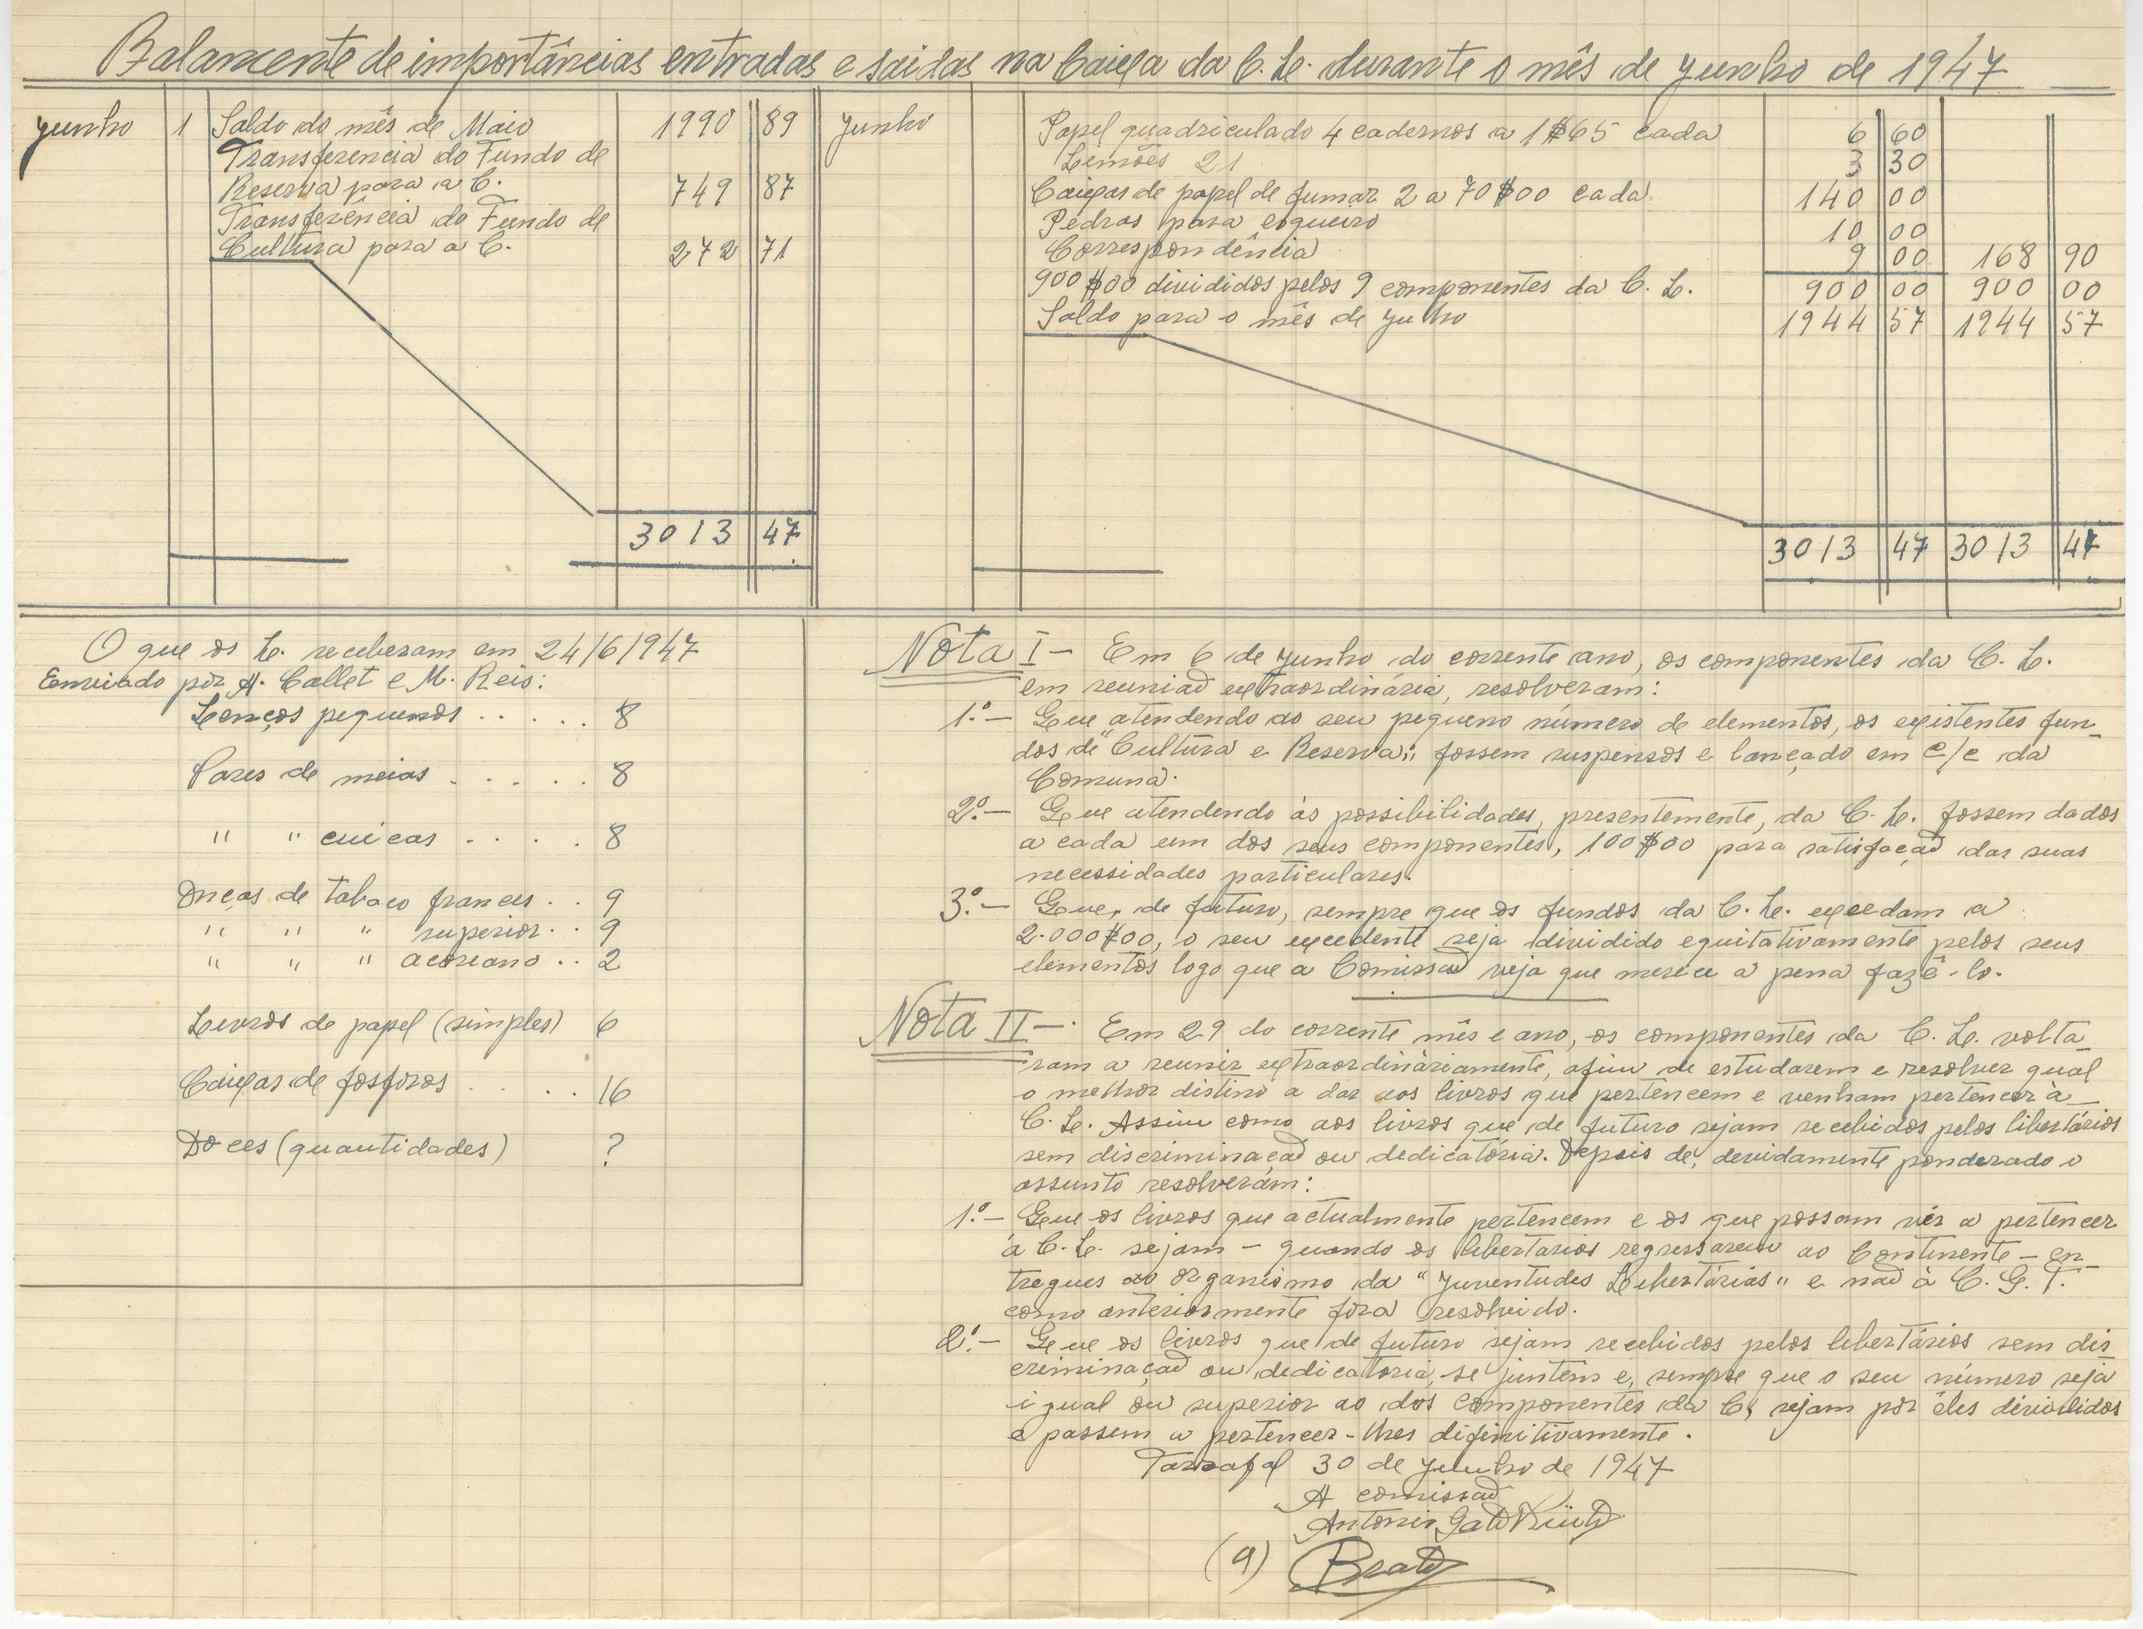 Balancente de importâncias entradas e saidas na Caixa da C. L. durante o mês de Junho de 1947
Junho 1 Saldo do mês de Maio 1990 89
Transferencia do Fundo de
Reserva para a C. 749 87
Transferência do Fundo de
Cultura para a C. 272 71
3013 47
Junho Papel quadriculado 4 cadernos a 1$65 cada 6 60
Limões 21 3 30
Caixas de papel de fumar 2 a 70$00 cada 140 00
Pedras para esqueiro 10 00
Correspondência 9 00 168 90
900$00 divididos pelos 9 componentes da C. L. 900 00 900 00
Saldo para o mês de Julho 1944 57 1944 57
3013 47 3013 47
O que os L. receberam em 24/6/1947
Enviado por A. Callet e M. Reis:
Lenços pequenos . . . . . 8
Pares de meias . . . . . 8
" " cuicas . . . . 8
Onças de tabaco frances . . 9
" " " superior . . 9
" " " acoreano . . 2
Livros de papel (simples) 6
Caixas de fosforos . . . . 16
Doces (quantidades) ?
Nota I — Em 6 de Junho do corrente ano, os componentes da C. L.
em reuniaõ extraordinária, resolveram:
1.º — Que atendendo ao seu pequeno número de elementos, os existentes fun-
dos de "Cultura e Reserva" fossem suspensos e lançado em c/c da
Comuna.
2.º — Que atendendo às possibilidades, presentemente, da C. L. fossem dados
a cada um dos seus componentes, 100$00 para satisfaçaõ das suas
necessidades particulares.
3.º — Que, de futuro, sempre que os fundos da C. L. excedam a
2.000$00, o seu excedente seja dividido equitativamente pelos seus
elementos logo que a Comissaõ veja que merece a pena fazê-lo.
Nota II — Em 29 do corrente mês e ano, os componentes da C. L. volta-
ram a reunir extraordináriamente, afim de estudarem e resolver qual
o melhor distino a dar aos livros que pertencem e venham pertencer à
C. L. Assim como aos livros que de futuro sejam recebidos pelos libertários
sem discriminaçaõ ou dedicatória. Depois de, devidamente ponderado o
assunto resolveram:
1.º — Que os livros que actualmente pertencem e os que possam vir a pertencer
à C. L. sejam — quando os libertarios regressarem ao Continente — en-
tregues ao organismo da "Juventudes Libertárias" e naõ à C. G. T.
como anteriormente fora resolvido.
2.º — Que os livros que de futuro sejam recebidos pelos libertários sem dis-
criminaçaõ ou dedicatoria, se juntem e, sempre que o seu número seja
igual ou superior ao dos componentes da C, sejam por êles divididos
e passem a pertencer-lhes difinitivamente.
Tarrafal 30 de Junho de 1947
A comissaõ
Antonio Gato Pinto
(a) Brato